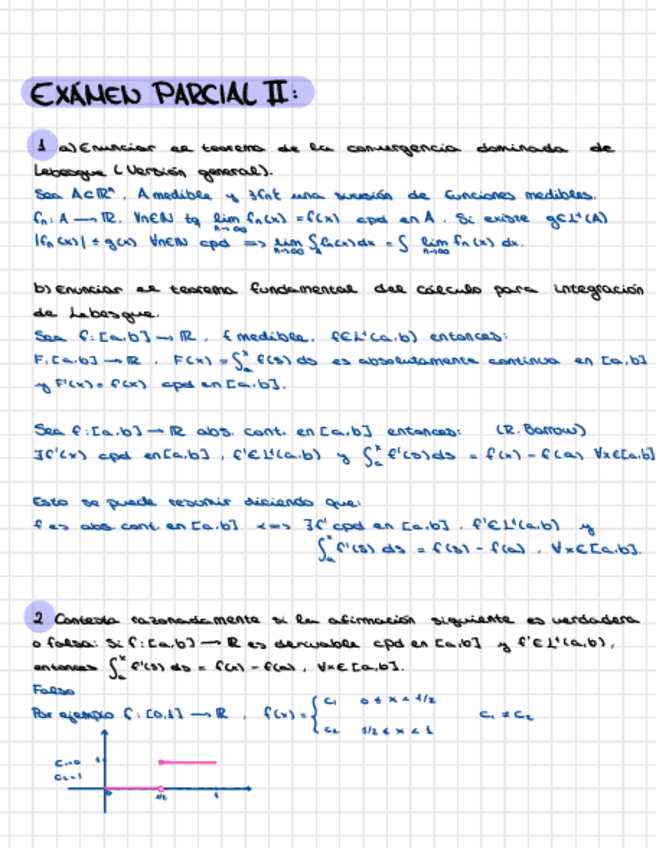 EXÁMEN PARCIAL II:
1 a) Enunciar el teorema de la convergencia dominada de
Lebesgue (Versión general).
Sea A⊂ℝⁿ, A medible y ∃fn≀ una sucesión de funciones medibles.
fn: A → ℝ. ∀n∈ℕ tq lim n→∞ fn(x) = f(x) cpd en A. Si existe g∈L¹(A)
|fn(x)| ≤ g(x) ∀n∈ℕ cpd => lim n→∞ ∫A fn(x)dx = ∫ lim n→∞ fn(x) dx.
b) Enunciar el teorema fundamental del cálculo para integración
de Lebesgue.
Sea f: [a,b] → ℝ, f medible, f∈L¹(a,b) entonces:
F: [a,b] → ℝ, F(x) = ∫ₐˣ f(s) ds es absolutamente continua en [a,b]
y F'(x) = f(x) cpd en [a,b].
Sea f: [a,b] → ℝ abs. cont. en [a,b] entonces: (R. Barrow)
∃f'(x) cpd en [a,b], f'∈L¹(a,b) y ∫ₐˣ f'(s)ds = f(x) - f(a) ∀x∈[a,b]
Esto se puede resumir diciendo que:
f es abs cont. en [a,b] <=> ∃f' cpd en [a,b], f'∈L¹(a,b) y
∫ₐˣ f'(s) ds = f(b) - f(a), ∀x∈[a,b].
2 Contesta razonadamente si la afirmación siguiente es verdadera
o falsa: Si f: [a,b] → ℝ es derivable cpd en [a,b] y f'∈L¹(a,b),
entonces ∫ₐˣ f'(s) ds = f(x) - f(a), ∀x∈[a,b].
Falso
Por ejemplo f: [0,1] → ℝ, f(x) = { c₁ 0 ≤ x < 1/2
c₂ 1/2 ≤ x < 1 c₁ ≠ c₂
c₁=0
c₂=1
1
0 1/2 1